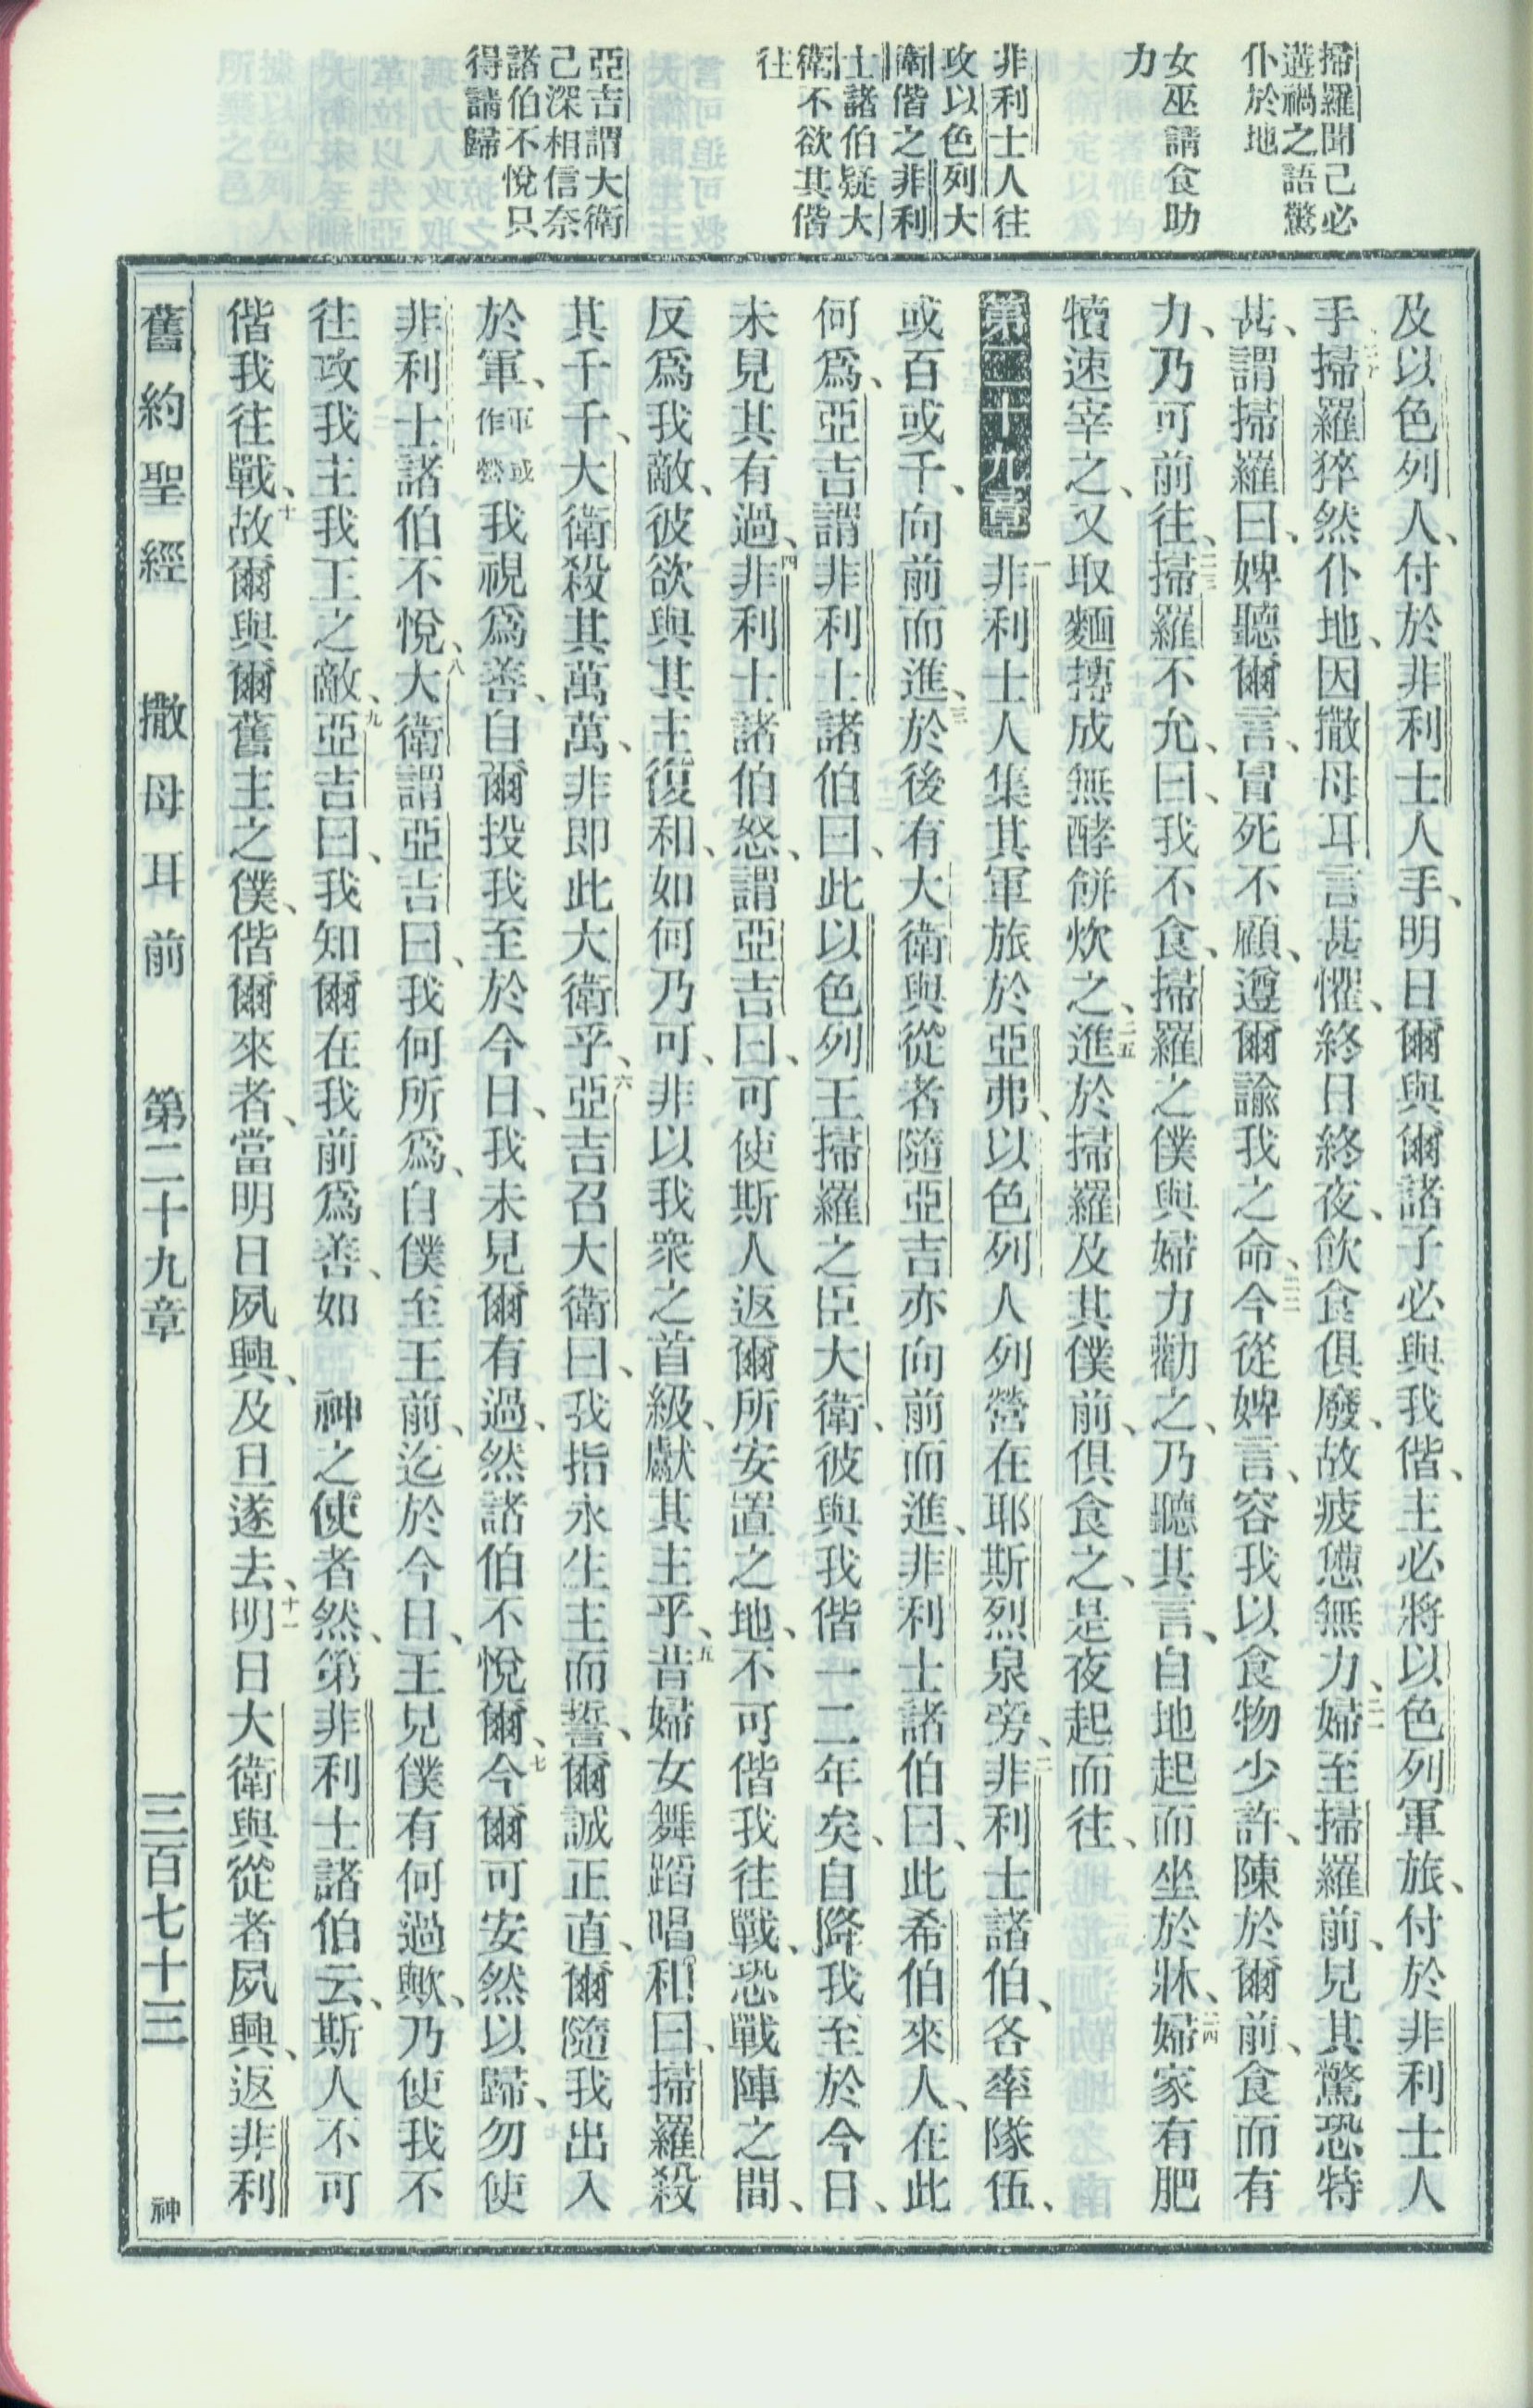 掃羅聞己必
遘禍之語驚
仆於地
女巫請食助
力
非利士人往
攻以色列大
衛偕之非利
士諸伯疑大
衛不欲其偕
往
亞吉謂大衛
己深相信奈
諸伯不悅只
得請歸
及以色列人、付於非利士人手、明日爾與爾諸子必與我偕、主必將以色列軍旅、付於非利士人
手、二十掃羅猝然仆地、因撒母耳言甚懼、終日終夜、飲食俱廢、故疲憊無力、二一婦至掃羅前、見其驚恐特
甚、謂掃羅曰、婢聽爾言、冒死不顧、遵爾諭我之命、二二今從婢言、容我以食物少許、陳於爾前、食而有
力、乃可前往、二三掃羅不允、曰、我不食、掃羅之僕與婦力勸之、乃聽其言、自地起而坐於牀、二四婦家有肥
犢速宰之、又取麵摶成無酵餅炊之、二五進於掃羅及其僕前、俱食之、是夜起而往、
第二十九章 一非利士人集其軍旅於亞弗、以色列人列營在耶斯烈泉旁、二非利士諸伯、各率隊伍、
或百或千、向前而進、三於後有大衛與從者隨亞吉亦向前而進、非利士諸伯曰、此希伯來人、在此
何爲、亞吉謂非利士諸伯曰、此以色列王掃羅之臣大衛、彼與我偕一二年矣、自降我至於今日、
未見其有過、四非利士諸伯怒、謂亞吉曰、可使斯人返爾所安置之地、不可偕我往戰、恐戰陣之間、
反爲我敵、彼欲與其主復和、如何乃可、非以我衆之首級、獻其主乎、五昔婦女舞蹈唱和曰、掃羅殺
其千千、大衛殺其萬萬、非即此大衛乎、六亞吉召大衛曰、我指永生主而誓、爾誠正直、爾隨我出入
於軍、軍或作營我視爲善、自爾投我至於今日、我未見爾有過、然諸伯不悅爾、七今爾可安然以歸、勿使
非利士諸伯不悅、八大衛謂亞吉曰、我何所爲、自僕至王前、迄於今日、王見僕有何過歟、乃使我不
往攻我主我王之敵、九亞吉曰、我知爾在我前爲善、如　神之使者然、第非利士諸伯云、斯人不可
偕我往戰、十故爾與爾舊主之僕、偕爾來者、當明日夙興、及旦遂去、十一明日大衛與從者夙興、返非利
舊約聖經　撒母耳前　第二十九章　三百七十三　神